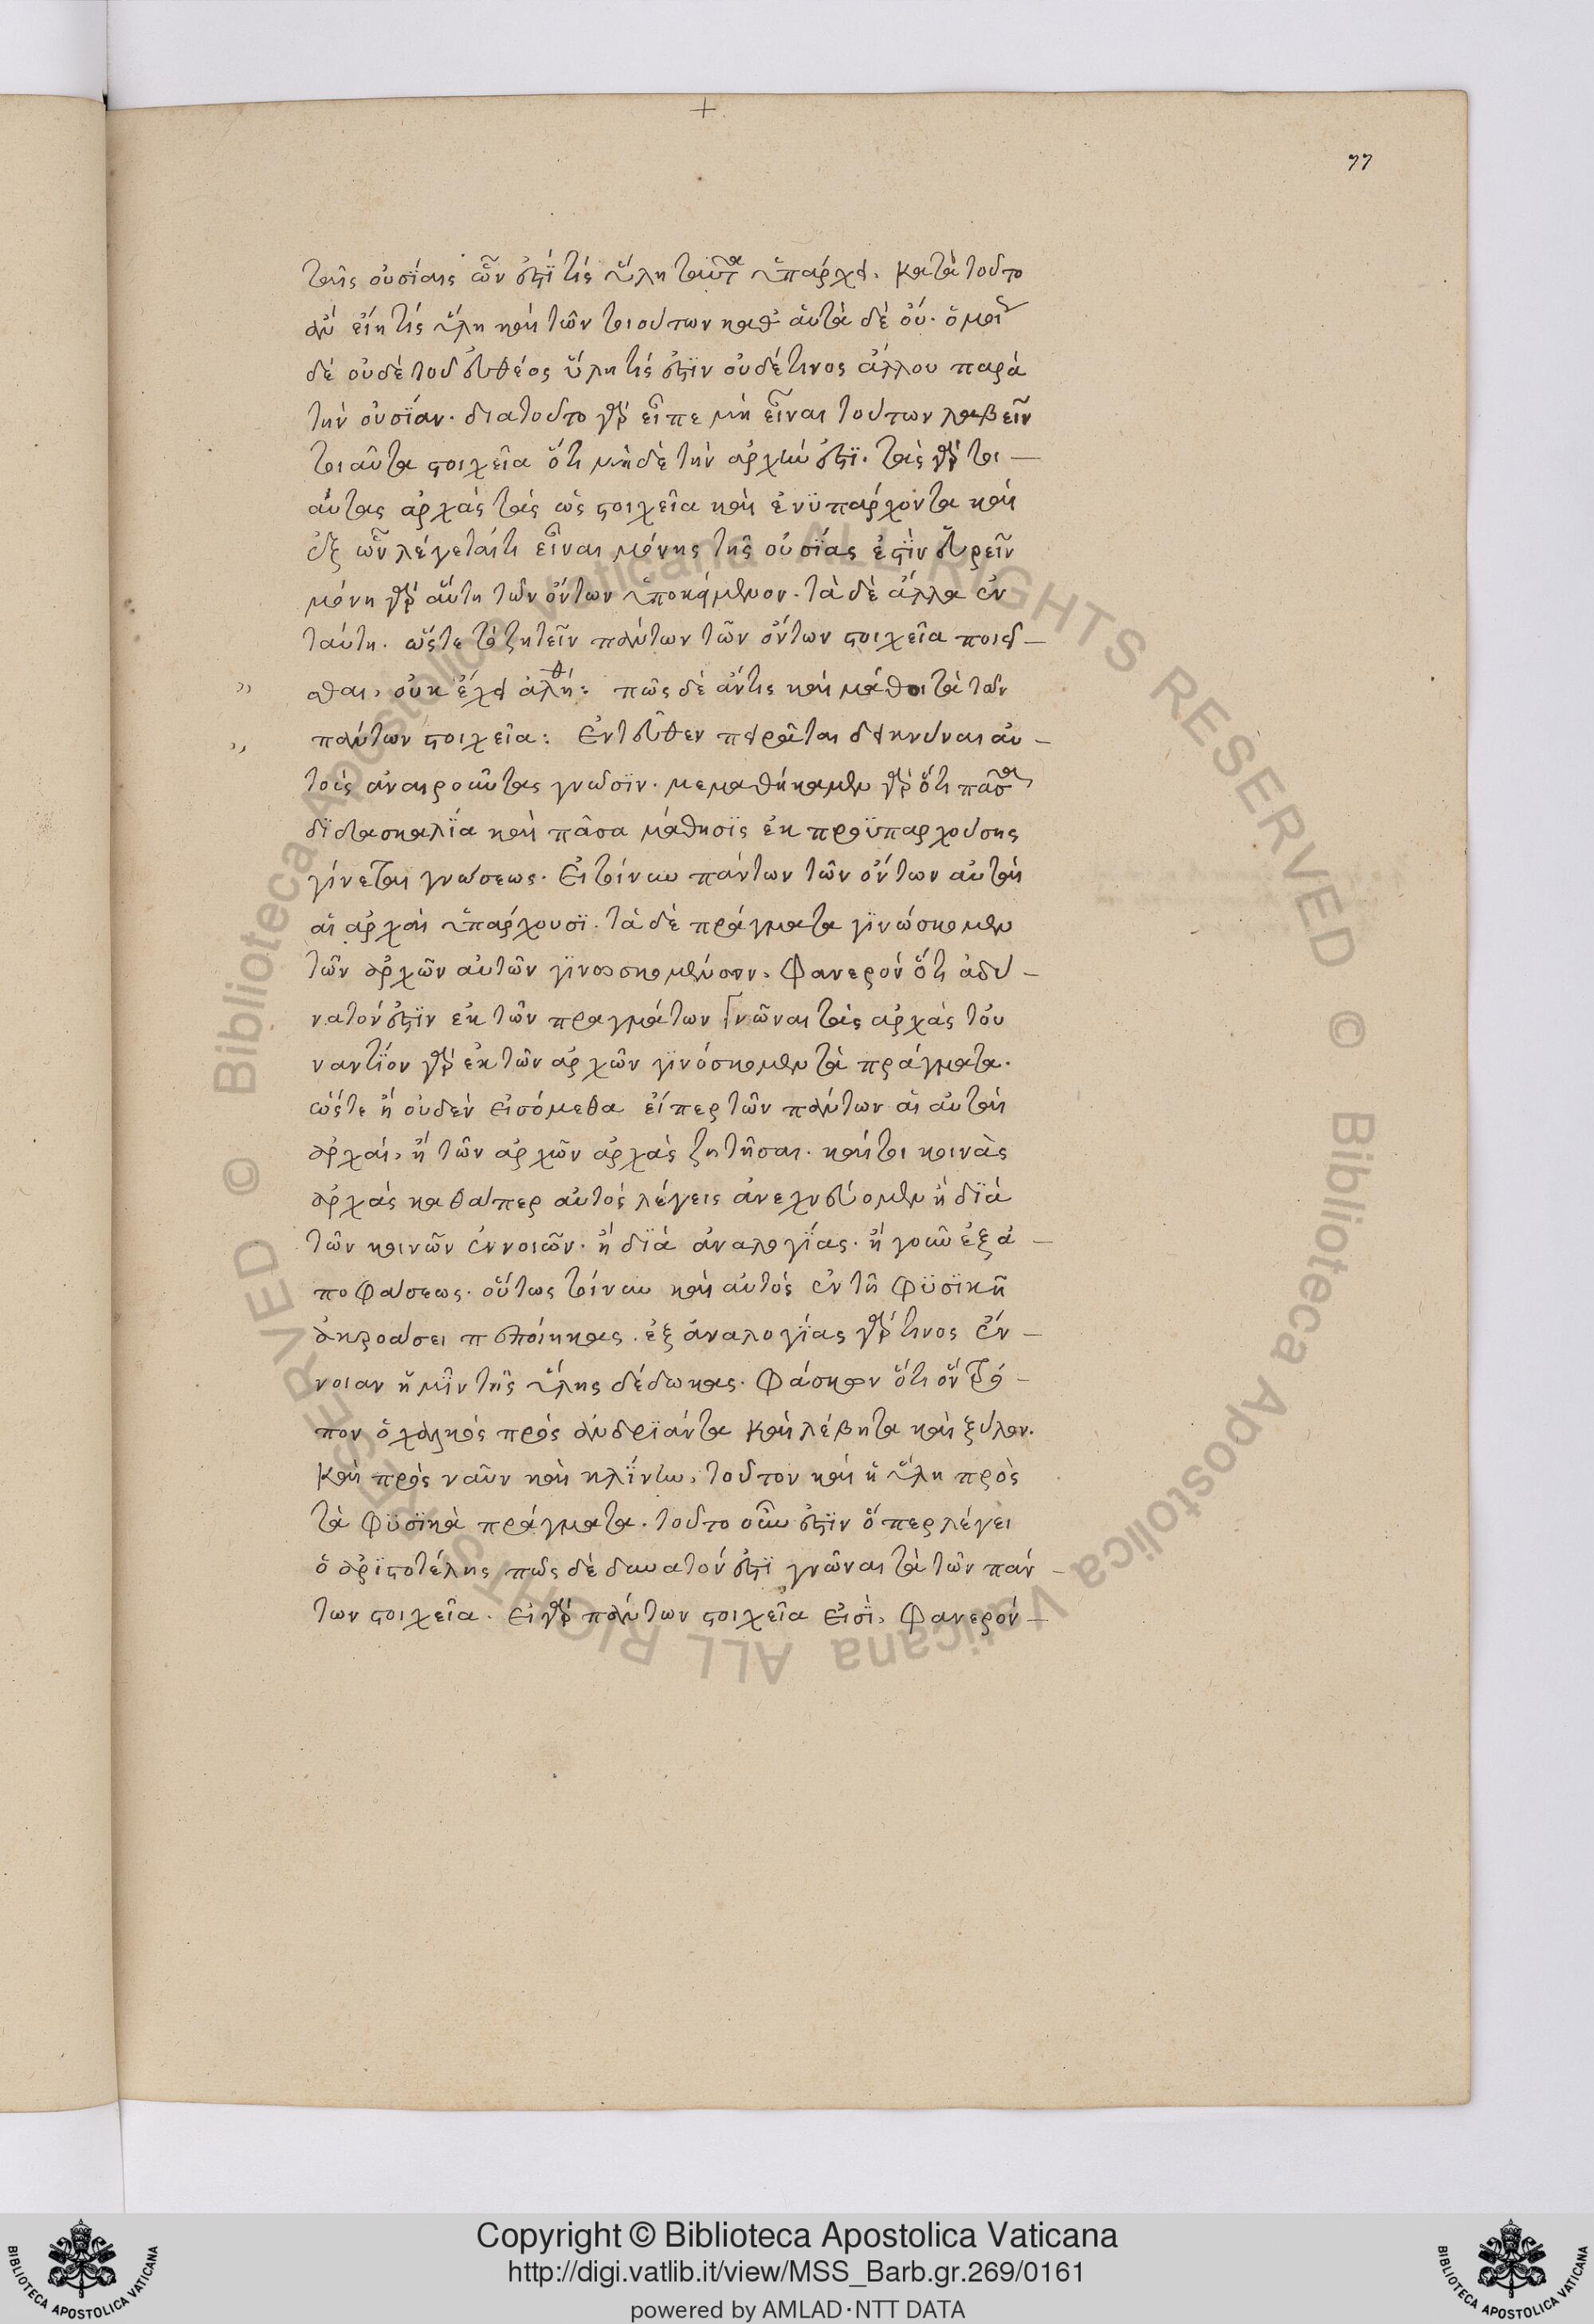 +
77
ταῖς οὐσίαις ὧν ἐστί τίς ὕλη ταῦτα ὑπάρχει. κατὰ τοῦτο
ἂν εἴη τίς ὕλη καὶ τῶν τοιούτων καθ αὑτὰ δὲ οὔ. ὅμοι
δὲ οὐδὲ τοῦ εὐθέος ὕλη τίς ἐστὶν οὐδέ τινος ἄλλου παρά
τὴν οὐσίαν. διατοῦτο γὰρ εἶπε μὴ εἶναι τούτων λαβεῖν
τοιαῦτα στοιχεῖα ὅτι μὴδὲ τὴν ἀρχήν ἐστι. τὰς γὰρ τοι-
αύτας ἀρχὰς τὰς ὡς στοιχεῖα καὶ ἐνυπάρχοντα καὶ
ἐξ ὧν λέγεταί τι εἶναι μόνης τῆς οὐσίας ἐστὶν εὑρεῖν
μόνη γὰρ αὕτη τῶν ὄντων ὑποκείμενον. τὰ δὲ ἄλλα ἐν
ταύτη. ὥστε τὸ ζητεῖν πάντων τῶν ὄντων στοιχεῖα ποιεῖ-
σθαι, οὐκ ἔχει ἀληθ: πῶς δὲ ἄν τις καὶ μάθοι τὰ τῶν
πάντων στοιχεῖα: Ἐντεῦθεν πειρᾶται δεικνύναι αὐ-
τοὺς ἀναιροῦντας γνῶσϊν. μεμαθήκαμεν γὰρ ὅτι πᾶσα
διδασκαλία καὶ πᾶσα μάθησις ἐκ προϋπαρχούσης
γίνεται γνώσεως. Εἰ τοίνυν πάντων τῶν ὄντων αὐταὶ
αἱ ἀρχαὶ ὑπάρχουσϊ. τὰ δὲ πράγματα γϊνώσκομεν
τῶν ἀρχῶν αὐτῶν γϊνοσκομένων, Φανερόν ὅτι ἀδύ-
νατόν ἐστὶν ἐκ τῶν πραγμάτων γνῶναι τὰς ἀρχάς τοὐ
ναντίον γὰρ ἐκ τῶν ἀρχῶν γϊνόσκομεν τὰ πράγματα.
ὥστε ἢ οὐδὲν εἰσόμεθα εἴπερ τῶν πάντων αἱ αὐταὶ
ἀρχαί, ἢ τῶν ἀρχῶν ἀρχὰς ζητῆσαι. καίτοι κοινὰς
ἀρχάς καθάπερ αὐτός λέγεις ἀνεχνεύομεν ἢ διὰ
τῶν κοινῶν ἐννοιῶν. ἢ διὰ ἀναλογίας. ἢ γοῦν ἐξ ἀ-
ποφάσεως. οὕτως τοίνυν καὶ αὐτός ἐν τῆ Φϋσϊκῆ
ἀκροάσει πεποίηκας. ἐξ ἀναλογίας γὰρ τινος ἔν-
νοιαν ἡμῖν τῆς ὕλης δέδωκας. Φάσκων ὅτι ὃν τρό-
πον ὁ χαλκός πρὸς ἀνδριάντα καὶ λέβητα καὶ ξύλον.
καὶ πρὸς ναῦν καὶ κλίνην, τοῦτον καὶ ἡ ὕλη πρὸς
τὰ Φϋσϊκὰ πράγματα. τοῦτο οὖν ἐστὶν ὅπερ λέγει
ὁ ἀριστοτέλης πῶς δὲ δυνατόν ἐστι γνῶναι τὰ τῶν πάν-
των στοιχεῖα. εἰ γὰρ πάντων στοιχεῖα εἰσϊ, Φανερόν-
Copyright © Biblioteca Apostolica Vaticana
http://digi.vatlib.it/view/MSS_Barb.gr.269/0161
powered by AMLAD·NTT DATA